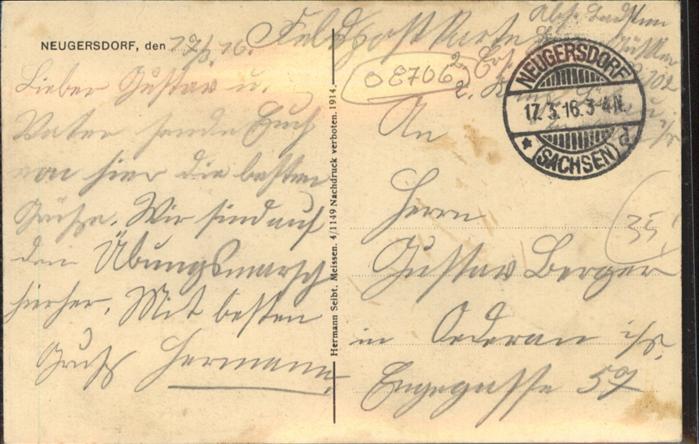 NEUGERSDORF, den 17/3. 16.
Lieber Gustav u.
Vater sende Euch
von hier die besten
Grüße. Wir sind auf
den Übungsmarsch
hierher. Mit besten
Gruß Hermann
Hermann Seibt, Meissen. 4/1149 Nachdruck verboten. 1914.
Feldpostkarte
08706
NEUGERSDORF
17. 3. 16. 3-4 N.
(SACHSEN)
An
Herrn
Gustav Berger
in Oederan i/s.
Engegasse 59